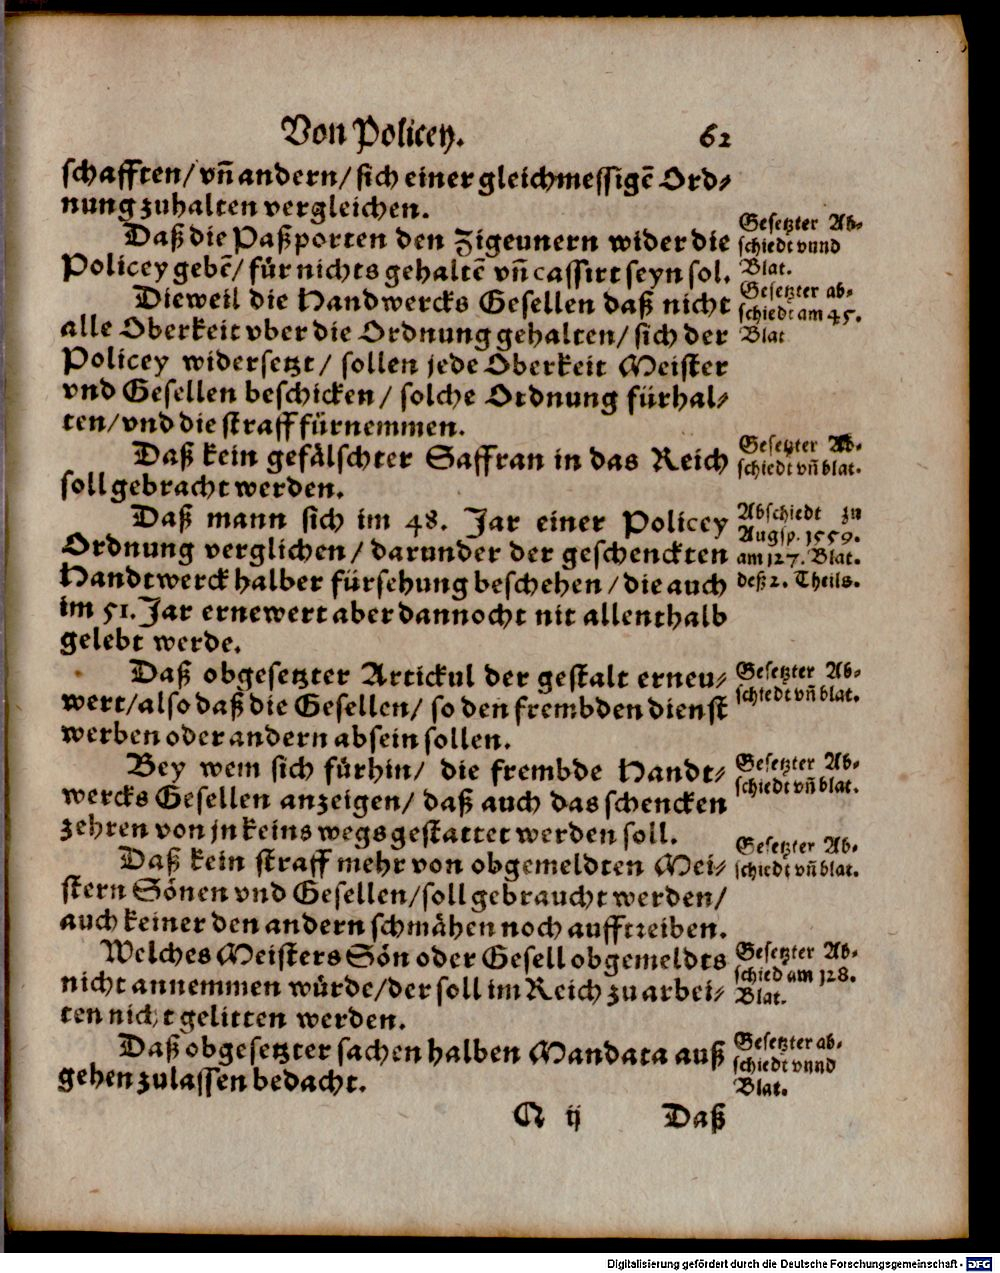 Von Policey. 62
schafften/ vñ andern/ sich einer gleichmessigẽ Ord⸗
nung zuhalten vergleichen.
Daß die Paßporten den Zigeunern wider die
Policey gebẽ/ für nichts gehaltẽ vñ cassirt seyn sol.
Gesetzter Ab⸗
schiedt vnnd
Blat.
Dieweil die Handwercks Gesellen daß nicht
alle Oberkeit vber die Ordnung gehalten/ sich der
Policey widersetzt/ sollen jede Oberkeit Meister
vnd Gesellen beschicken/ solche Ordnung fürhal⸗
ten/ vnd die straff fürnemmen.
Gesetzter ab⸗
schiedt am 45.
Blat
Daß kein gefälschter Saffran in das Reich
soll gebracht werden.
Gesetzter Ab⸗
schiedt vñ blat.
Daß mann sich im 48. Jar einer Policey
Ordnung verglichen/ darunder der geschenckten
Handtwerck halber fürsehung beschehen/ die auch
im 51. Jar ernewert aber dannocht nit allenthalb
gelebt werde.
Abschiedt zu
Augsp. 1559.
am 127. Blat.
deß 2. Theils.
Daß obgesetzter Artickul der gestalt erneu⸗
wert/ also daß die Gesellen/ so den frembden dienst
werben oder andern absein sollen.
Gesetzter Ab⸗
schiedt vñ blat.
Bey wem sich fürhin/ die frembde Handt⸗
wercks Gesellen anzeigen/ daß auch das schencken
zehren von jn keins wegs gestattet werden soll.
Gesetzter Ab⸗
schiedt vñ blat.
Daß kein straff mehr von obgemeldten Mei⸗
stern Sönen vnd Gesellen/ soll gebraucht werden/
auch keiner den andern schmähen noch aufftreiben.
Gesetzter Ab⸗
schiedt vñ blat.
Welches Meisters Sön oder Gesell obgemeldts
nicht annemmen würde/ der soll im Reich zu arbei⸗
ten nicht gelitten werden.
Gesetzter Ab⸗
schied am 128.
Blat.
Daß obgesetzter sachen halben Mandata auß
gehen zulassen bedacht.
Gesetzter ab⸗
schiedt vnnd
Blat.
Q ij Daß
Digitalisierung gefördert durch die Deutsche Forschungsgemeinschaft - DFG